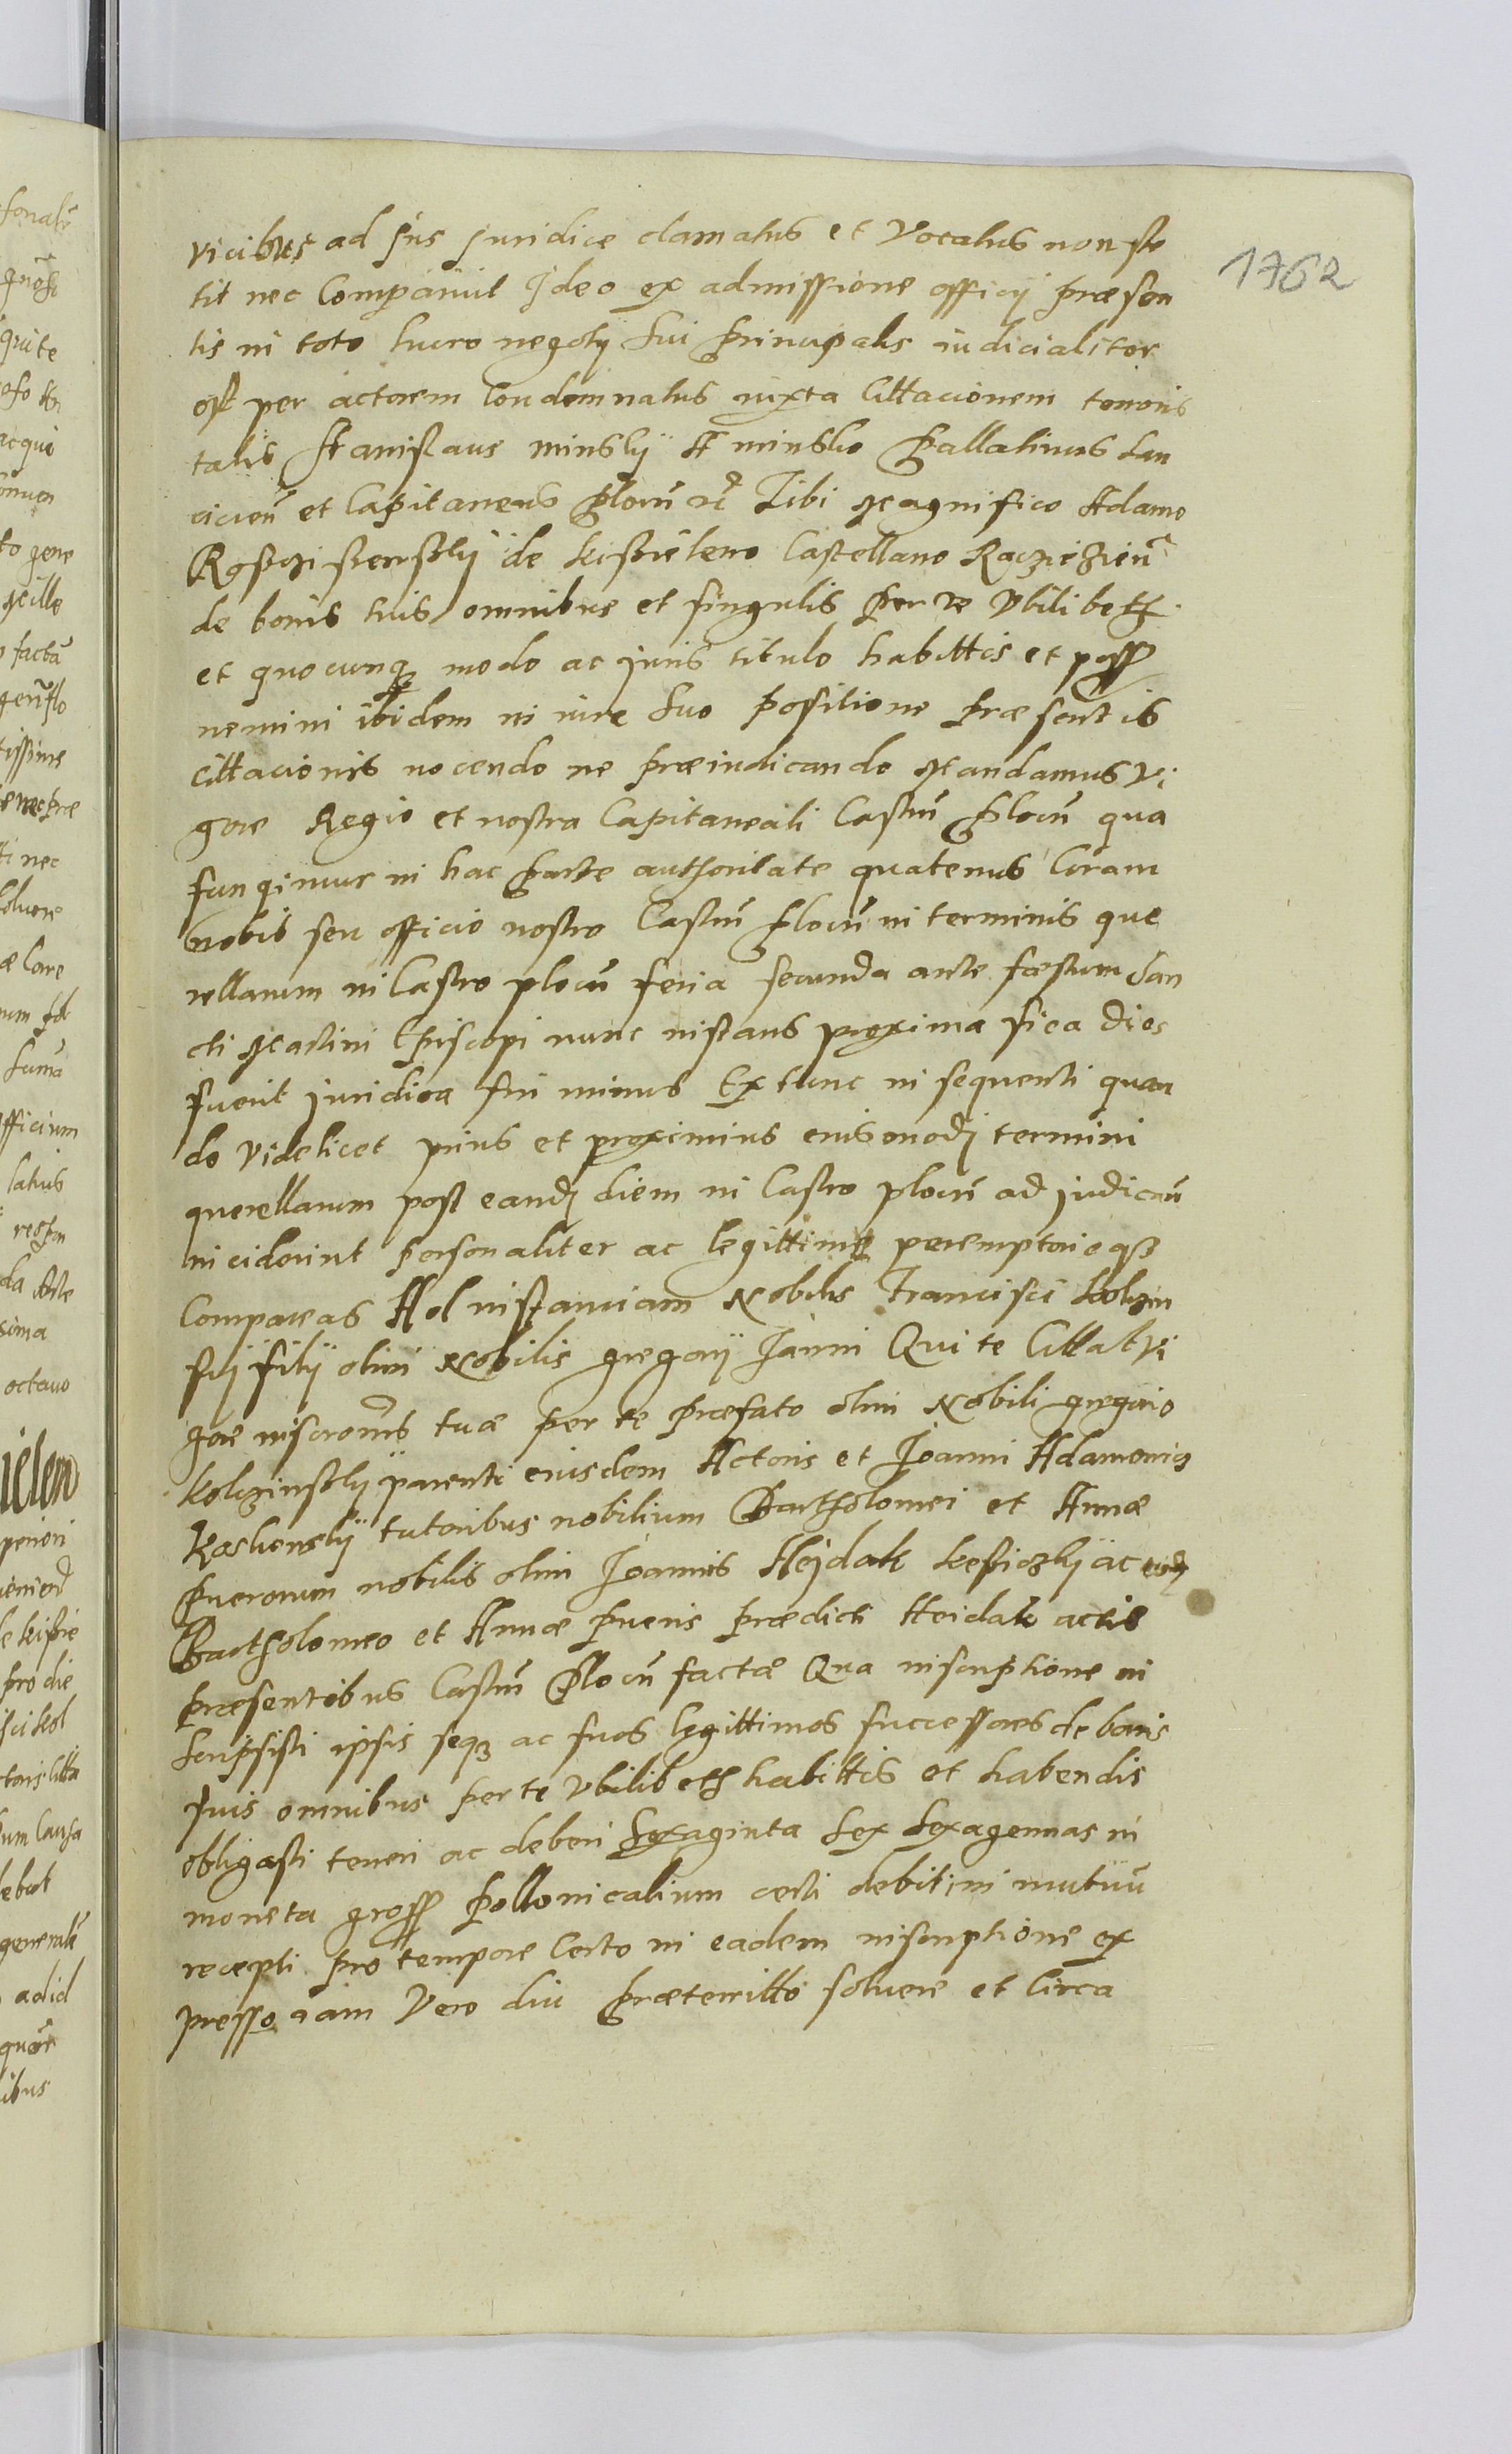 1762
vicibus ad jus juridice clamatus et Vocatus non ste
tit nec Comparuit Ideo ex admissione officij præsen
tis in toto lucro negotij sui principalis iudicialiter
est per actorem Condemnatus iuxta Cittacionem tenoris
talis Stanislaus minsky A minsko pallatinus Lan
cicien et Capitaneus plocen etc Tibi Magnifico Adamo
de kissielewo Castellano Raczieziens
de bonis tuis omnibus et singulis per te Vbilibeth
et quocunq modo ac juris titulo habittis et poss
nemini ibidem in iure suo possitione præsentis
Cittacionis nocendo ne præiudicando Mandamus Vi
gore Regio et nostra Capitaneali Castren plocen qua
fungimur in hac parte authoritate quatenus Coram
nobis seu officio nostro Castren plocen in terminis que
rellarum in Castro plocen feria secunda ante fæstum San
cti Martini Episcopi nunc instans proxima si ea dies
fuerit juridica sin minus Ex tunc in sequenti quan
do Videlicet prius et proximius eiusmodi termini
querellarum post eand diem in Castro plocen ad judican
inciderint personaliter ac legittime peremptorieqz
Compareas Ad instanciam Nobilis Francisci kolczin
sky filij olim Nobilis gregorij Ianni Qui te Cittat Vi
gore inscronis tuæ per te præfato olim Nobili gregorio
kolczinsky parenti eiusdem Actoris et Joanni Adamowicz
tutoribus nobilium Bartholomei et Annæ
puerorum nobilis olim Joannis Hejdak ac
Bartholomeo et Annæ pueris prædicti Heidak actis
præsentibus Castren Plocen factæ Qua inscriptione in
scripsisti ipsis seqz ac suos legittimos successores de bonis
tuis omnibus per te Vbilibeth habittis et habendis
obligasti teneri ac deberi Sexaginta Sex Sexagennas in
moneta gross pollonicalium certi debiti in mutuum
recepti pro tempore Certo in eadem inscriptione ex
presso iam Vero diu præterritto soluere et Circa